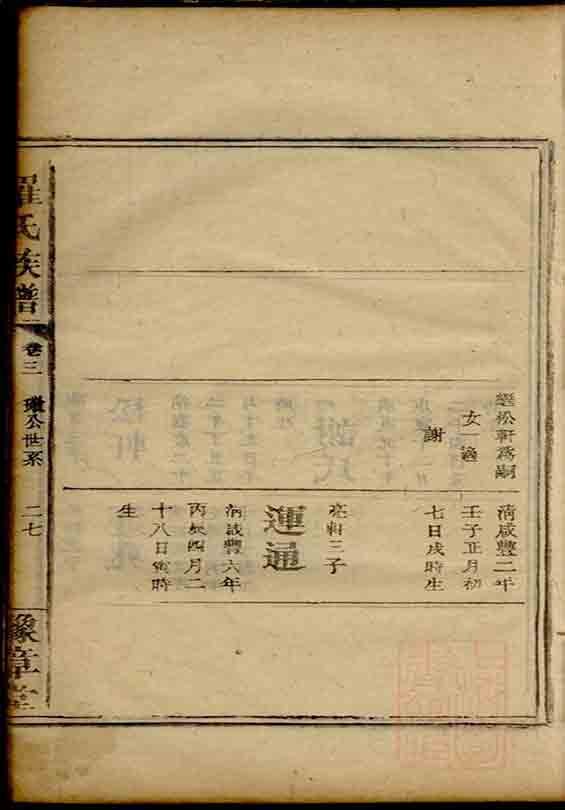 繼松軒為嗣
女一適
謝
清咸豐二年
壬子正月初
七日戌時生
亮軒三子
運通
清咸豐六年
丙辰四月二
十八日寅時
生
羅氏族譜
卷三
公世系
二七
豫章堂